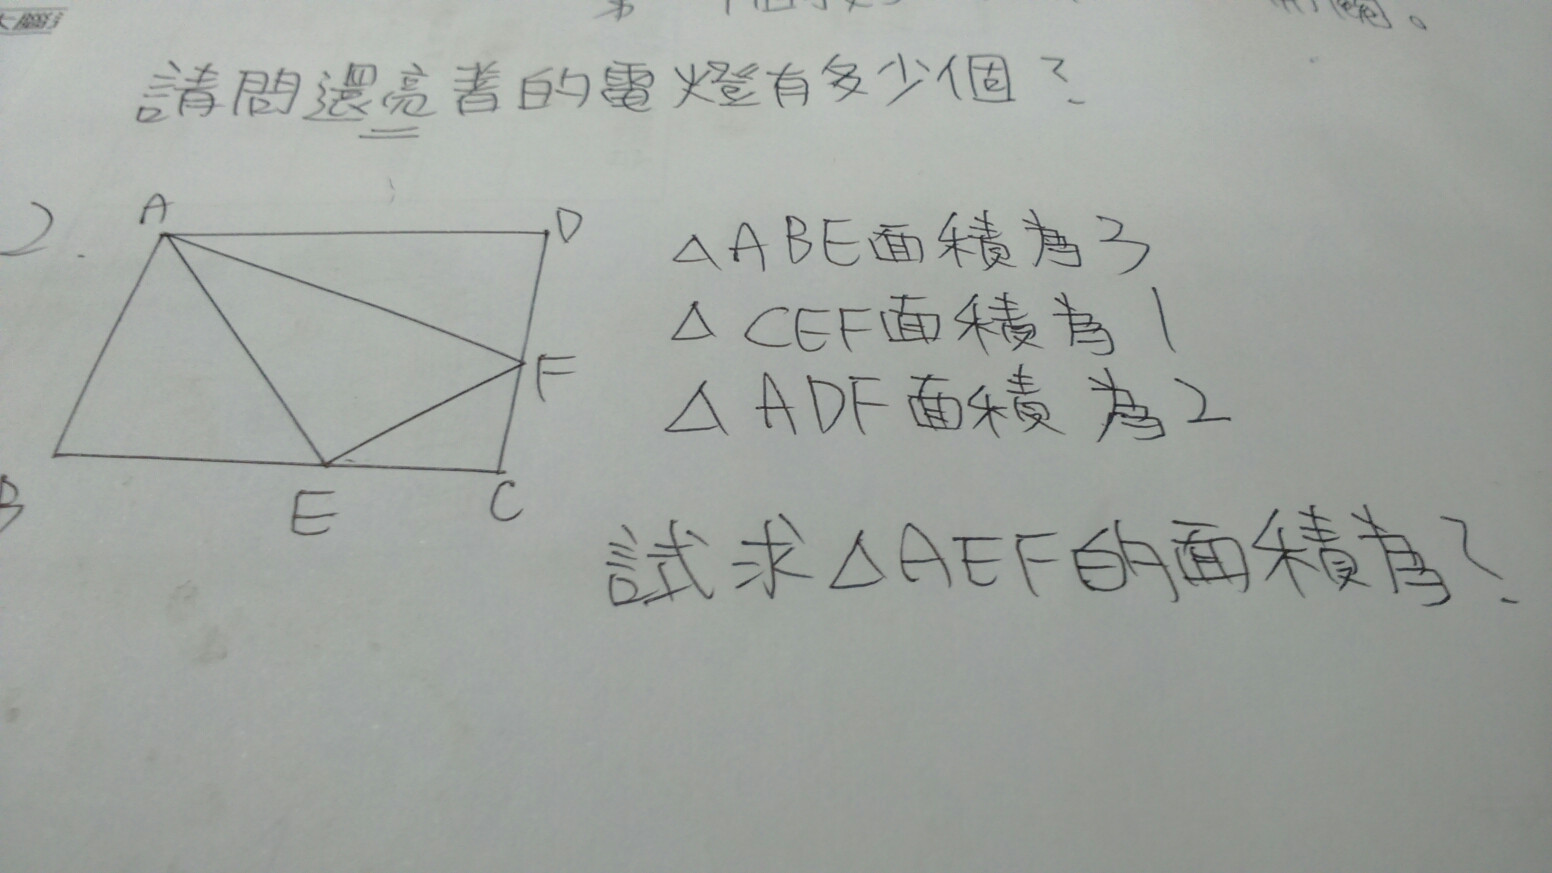 請問還亮著的電燈有多少個?
2.
A
D
△ABE面積為3
△CEF面積為1
F
△ADF面積為2
B
E
C
試求△AEF的面積為?